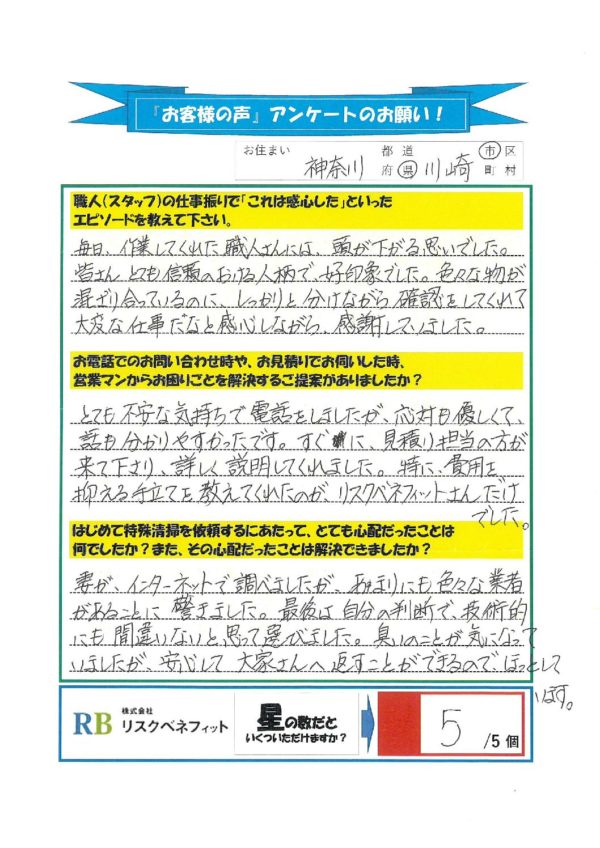 『お客様の声』アンケートのお願い！
お住まい 神奈川 都道府県 川崎 市区町村
職人(スタッフ)の仕事振りで「これは感心した」といった
エピソードを教えて下さい。
毎日、作業してくれた職人さんには、頭が下がる思いでした。
皆さんとても信頼のおける人柄で、好印象でした。色々な物が
混ざり合っているのに、しっかりと分けながら確認をしてくれて
大変な仕事だなと感心しながら、感謝していました。
お電話でのお問い合わせ時や、お見積りでお伺いした時、
営業マンからお困りごとを解決するご提案がありましたか？
とても不安な気持ちで電話をしましたが、応対も優しくて、
話も分かりやすかったです。すぐに、見積り担当の方が
来て下さり、詳しく説明してくれました。特に、費用を
抑える手立てを教えてくれたのが、リスクベネフィットさんだけ
でした。
はじめて特殊清掃を依頼するにあたって、とても心配だったことは
何でしたか？また、その心配だったことは解決できましたか？
妻が、インターネットで調べましたが、あまりにも色々な業者
があることに驚きました。最後は自分の判断で、技術的
にも間違いないと思って選びました。臭いのことが気になって
いましたが、安心して大家さんへ返すことができるので、ほっとして
います。
RB 株式会社
リスクベネフィット
星の数だと
いくついただけますか？
5 /5個